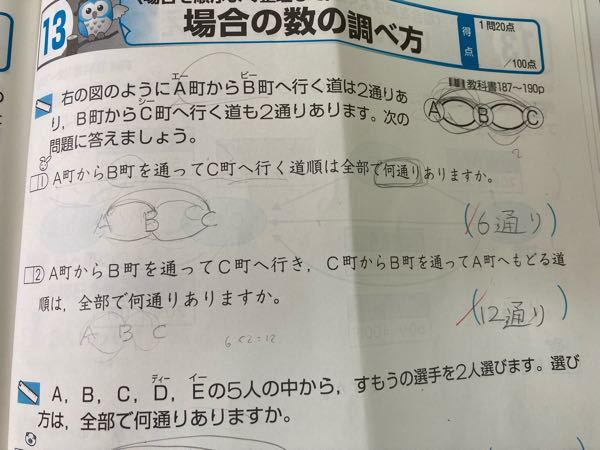 13
場合の数の調べ方
得点
1問20点
/100点
教科書187~190p
右の図のようにA町からB町へ行く道は2通りあ
エー ビー
り,B町からC町へ行く道も2通りあります。次の
シー
問題に答えましょう。
A B C
2
1 A町からB町を通ってC町へ行く道順は全部で何通りありますか。
A B C
(6通り)
2 A町からB町を通ってC町へ行き,C町からB町を通ってA町へもどる道
順は,全部で何通りありますか。
(12通り)
A B C
6×2=12
A,B,C,D,Eの5人の中から,すもうの選手を2人選びます。選び
ディー イー
方は,全部で何通りありますか。